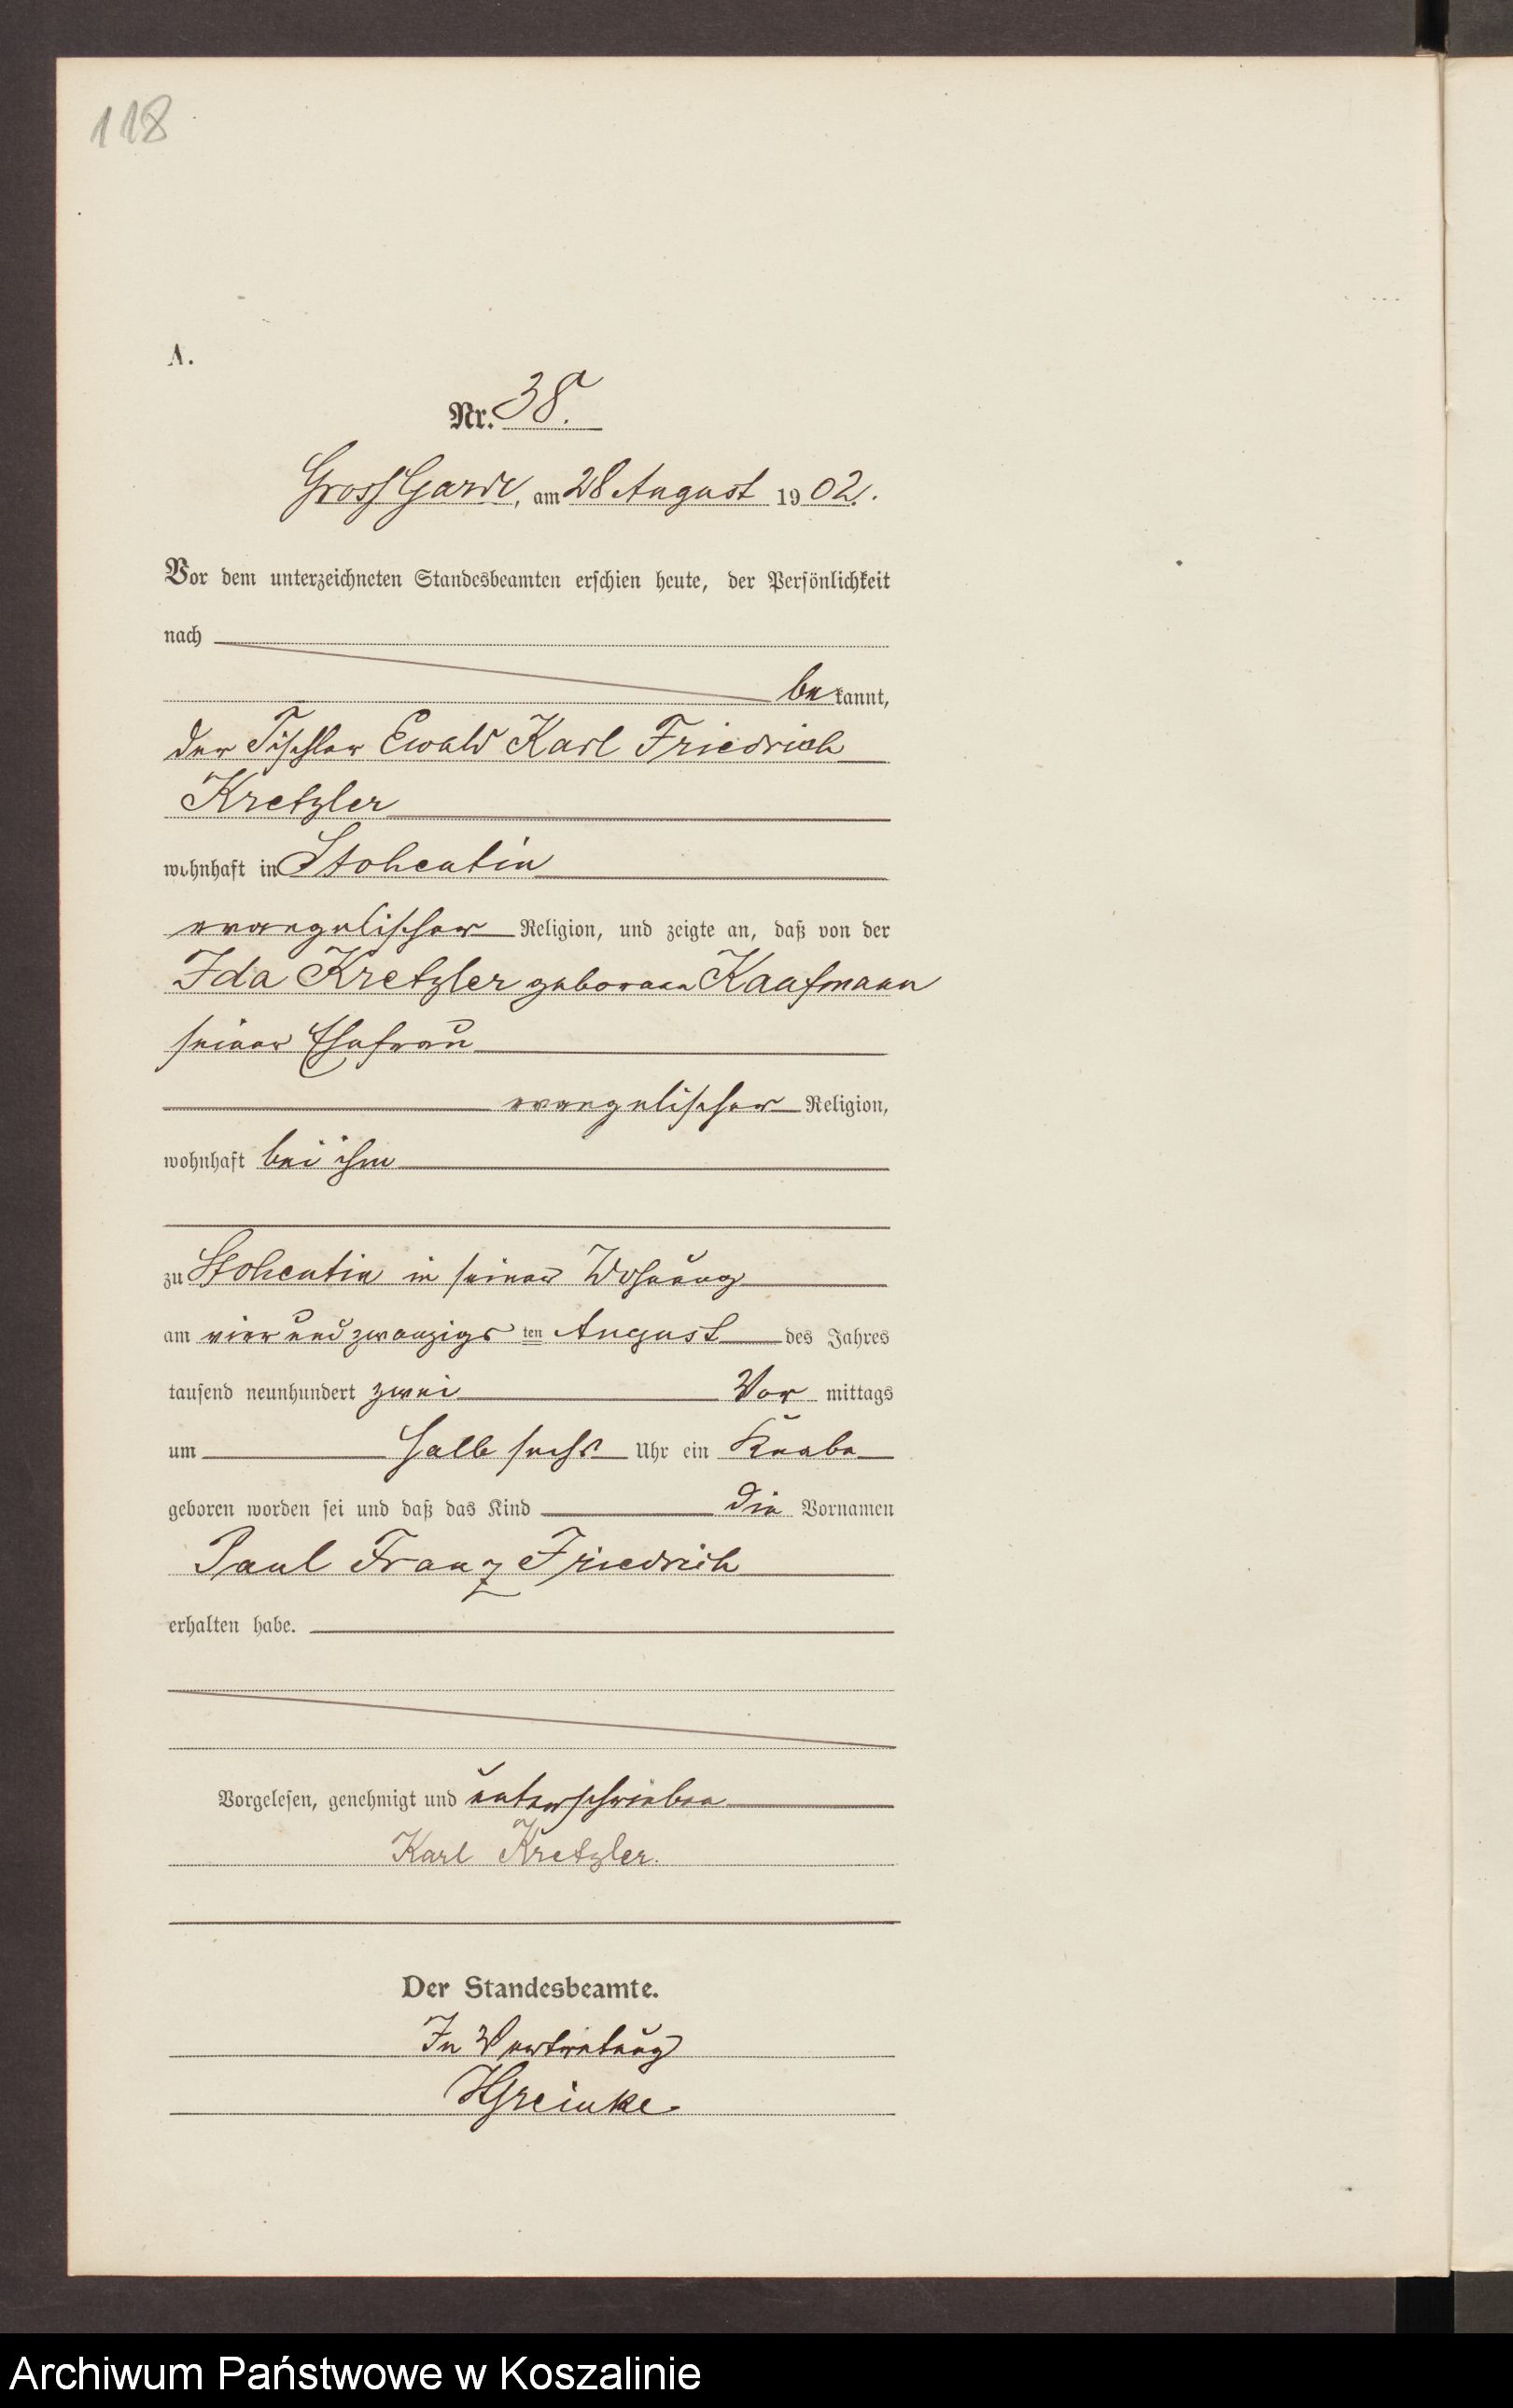 118
A.
Nr. 38.
Gross Garde, am 28 August 1902.
Vor dem unterzeichneten Standesbeamten erschien heute, der Persönlichkeit
nach
bekannt,
der Tischler Ewald Karl Friedrich
Kretzler
wohnhaft in Stohentin
evangelischer Religion, und zeigte an, daß von der
Ida Kretzler geborenen Kaufmann
seiner Ehefrau
evangelischer Religion,
wohnhaft bei ihm
zu Stohentin in seiner Wohnung
am vier und zwanzigsten August des Jahres
tausend neunhundert zwei Vor mittags
um halb sechs Uhr ein Knabe
geboren worden sei und daß das Kind die Vornamen
Paul Franz Friedrich
erhalten habe.
Vorgelesen, genehmigt und unterschrieben
Karl Kretzler.
Der Standesbeamte.
In Vertretung
HGreinke.
Archiwum Państwowe w Koszalinie